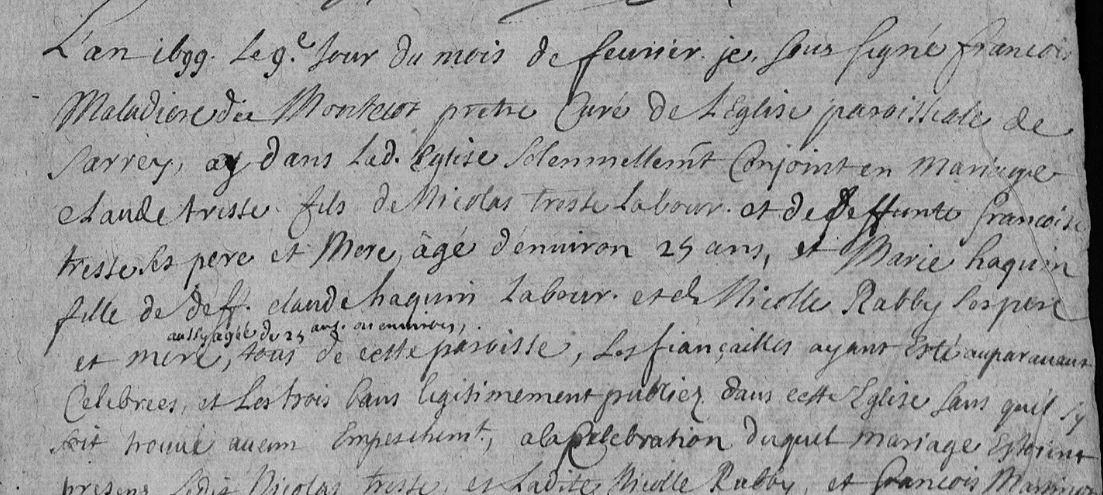 L'an 1699. Le 9e. Jour du mois de fevrier. je, sous signé francois
Maladiere dit Montelot prètre Curé de L'Eglise paroissiale de
Sarrey, ay dans Lad. Eglise Solennellemt. Conjoint en mariage
claude tresse fils de Nicolas tresse Labour. et de deffunte francoise
tresse Ses pere et Mere, âgé d'environ 25 ans, et Marie haquin
fille de deff. claude haquin Labour. et de Nicolle Rabby Ses pere
aussy agée de 25 ans. ou environs,
et mere, tous de cette paroisse, Les fiançailles ayant esté auparavant
Celebrées, et Les trois bans legitimement publiez dans cette Eglise sans quil sy
soit trouvé aucun Empeschemt., a la Celebration duquel mariage Estoient
presens Ledit Nicolas tresse, et Ladite Nicolle Rabby, et francois